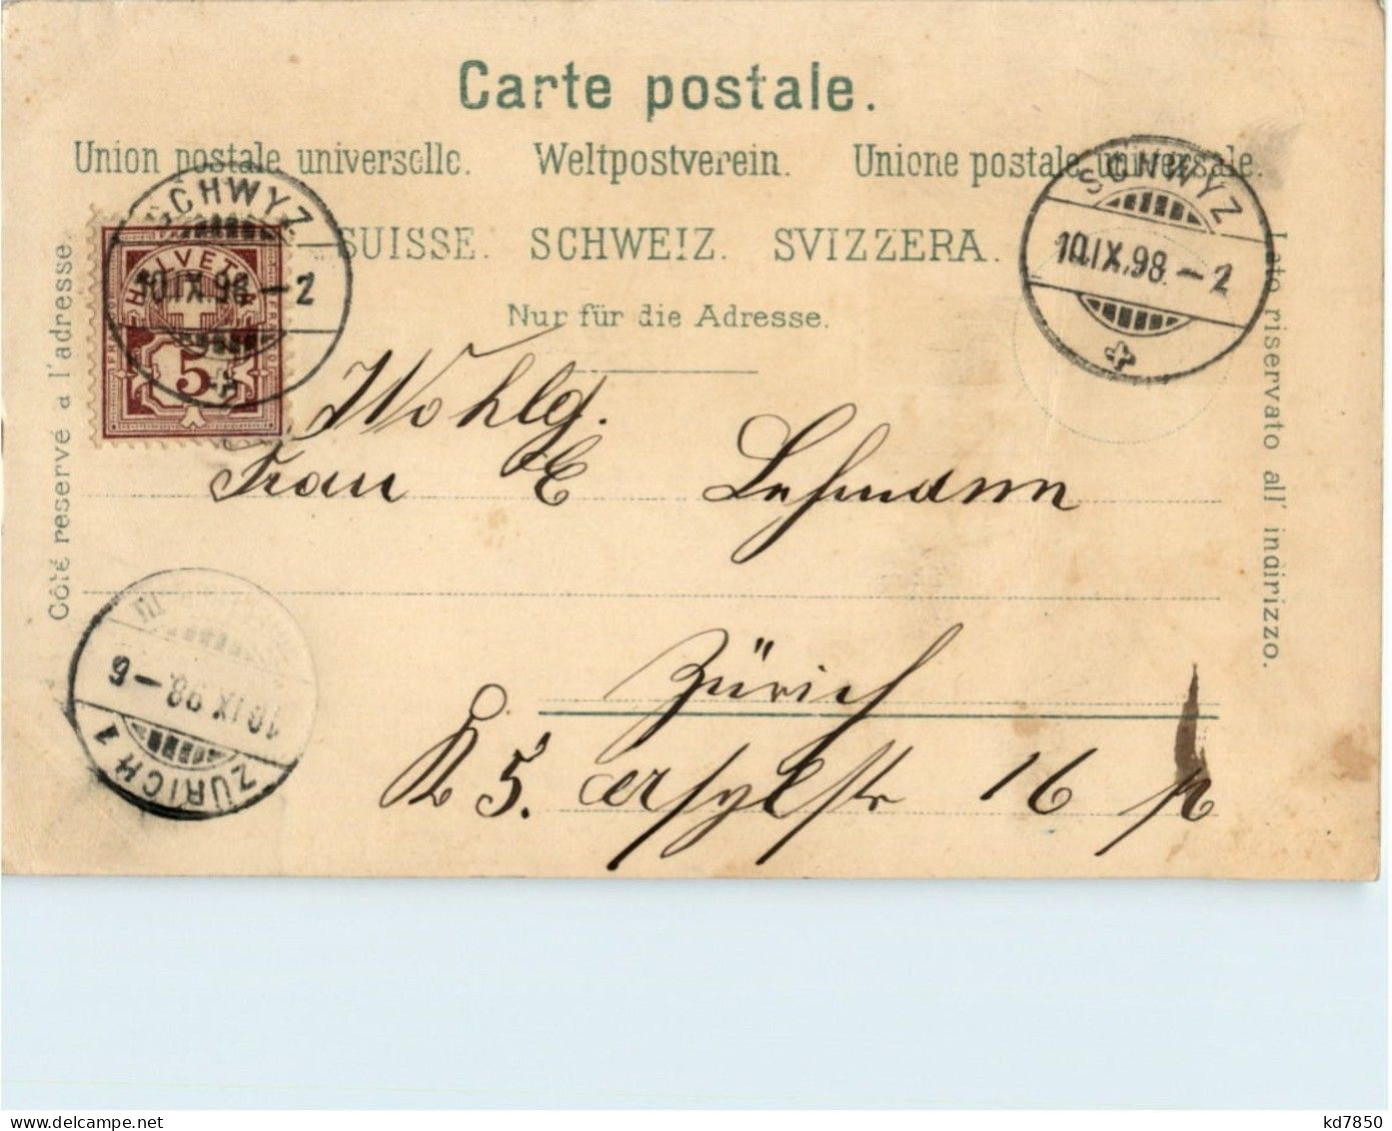 Carte postale.
Union postale universelle. Weltpostverein. Unione postale universale.
SUISSE. SCHWEIZ. SVIZZERA.
Nur für die Adresse.
Côté reservé a l'adresse.
Lato riservato all' indirizzo.
HELVETIA
5
SCHWYZ
10.IX.98.-2
SCHWYZ
10.IX.98.-2
Wohlg.
Frau E Lehmann
Zürich
K 5. 16
ZÜRICH 1
10.IX.98.-6
delcampe.net
kd7850